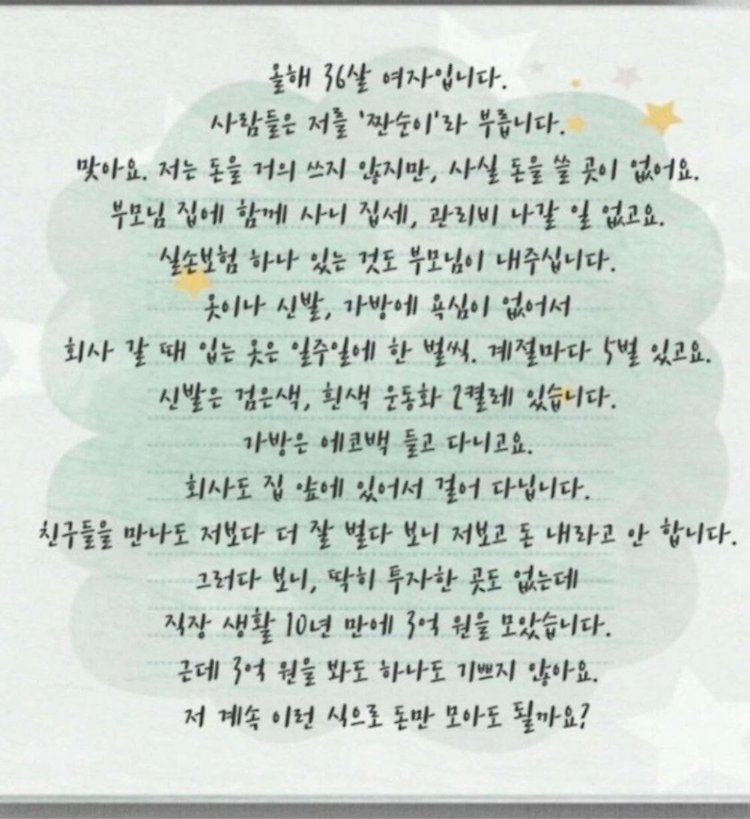 올해 36살 여자입니다.
사람들은 저를 '짠순이'라 부릅니다.
맞아요. 저는 돈을 거의 쓰지 않지만, 사실 돈을 쓸 곳이 없어요.
부모님 집에 함께 사니 집세, 관리비 나갈 일 없고요.
실손보험 하나 있는 것도 부모님이 내주십니다.
옷이나 신발, 가방에 욕심이 없어서
회사 갈 때 입는 옷은 일주일에 한 벌씩. 계절마다 5벌 있고요.
신발은 검은색, 흰색 운동화 2켤레 있습니다.
가방은 에코백 들고 다니고요.
회사도 집 앞에 있어서 걸어 다닙니다.
친구들을 만나도 저보다 더 잘 벌다 보니 저보고 돈 내라고 안 합니다.
그러다 보니, 딱히 투자한 곳도 없는데
직장 생활 10년 만에 3억 원을 모았습니다.
근데 3억 원을 봐도 하나도 기쁘지 않아요.
저 계속 이런 식으로 돈만 모아도 될까요?